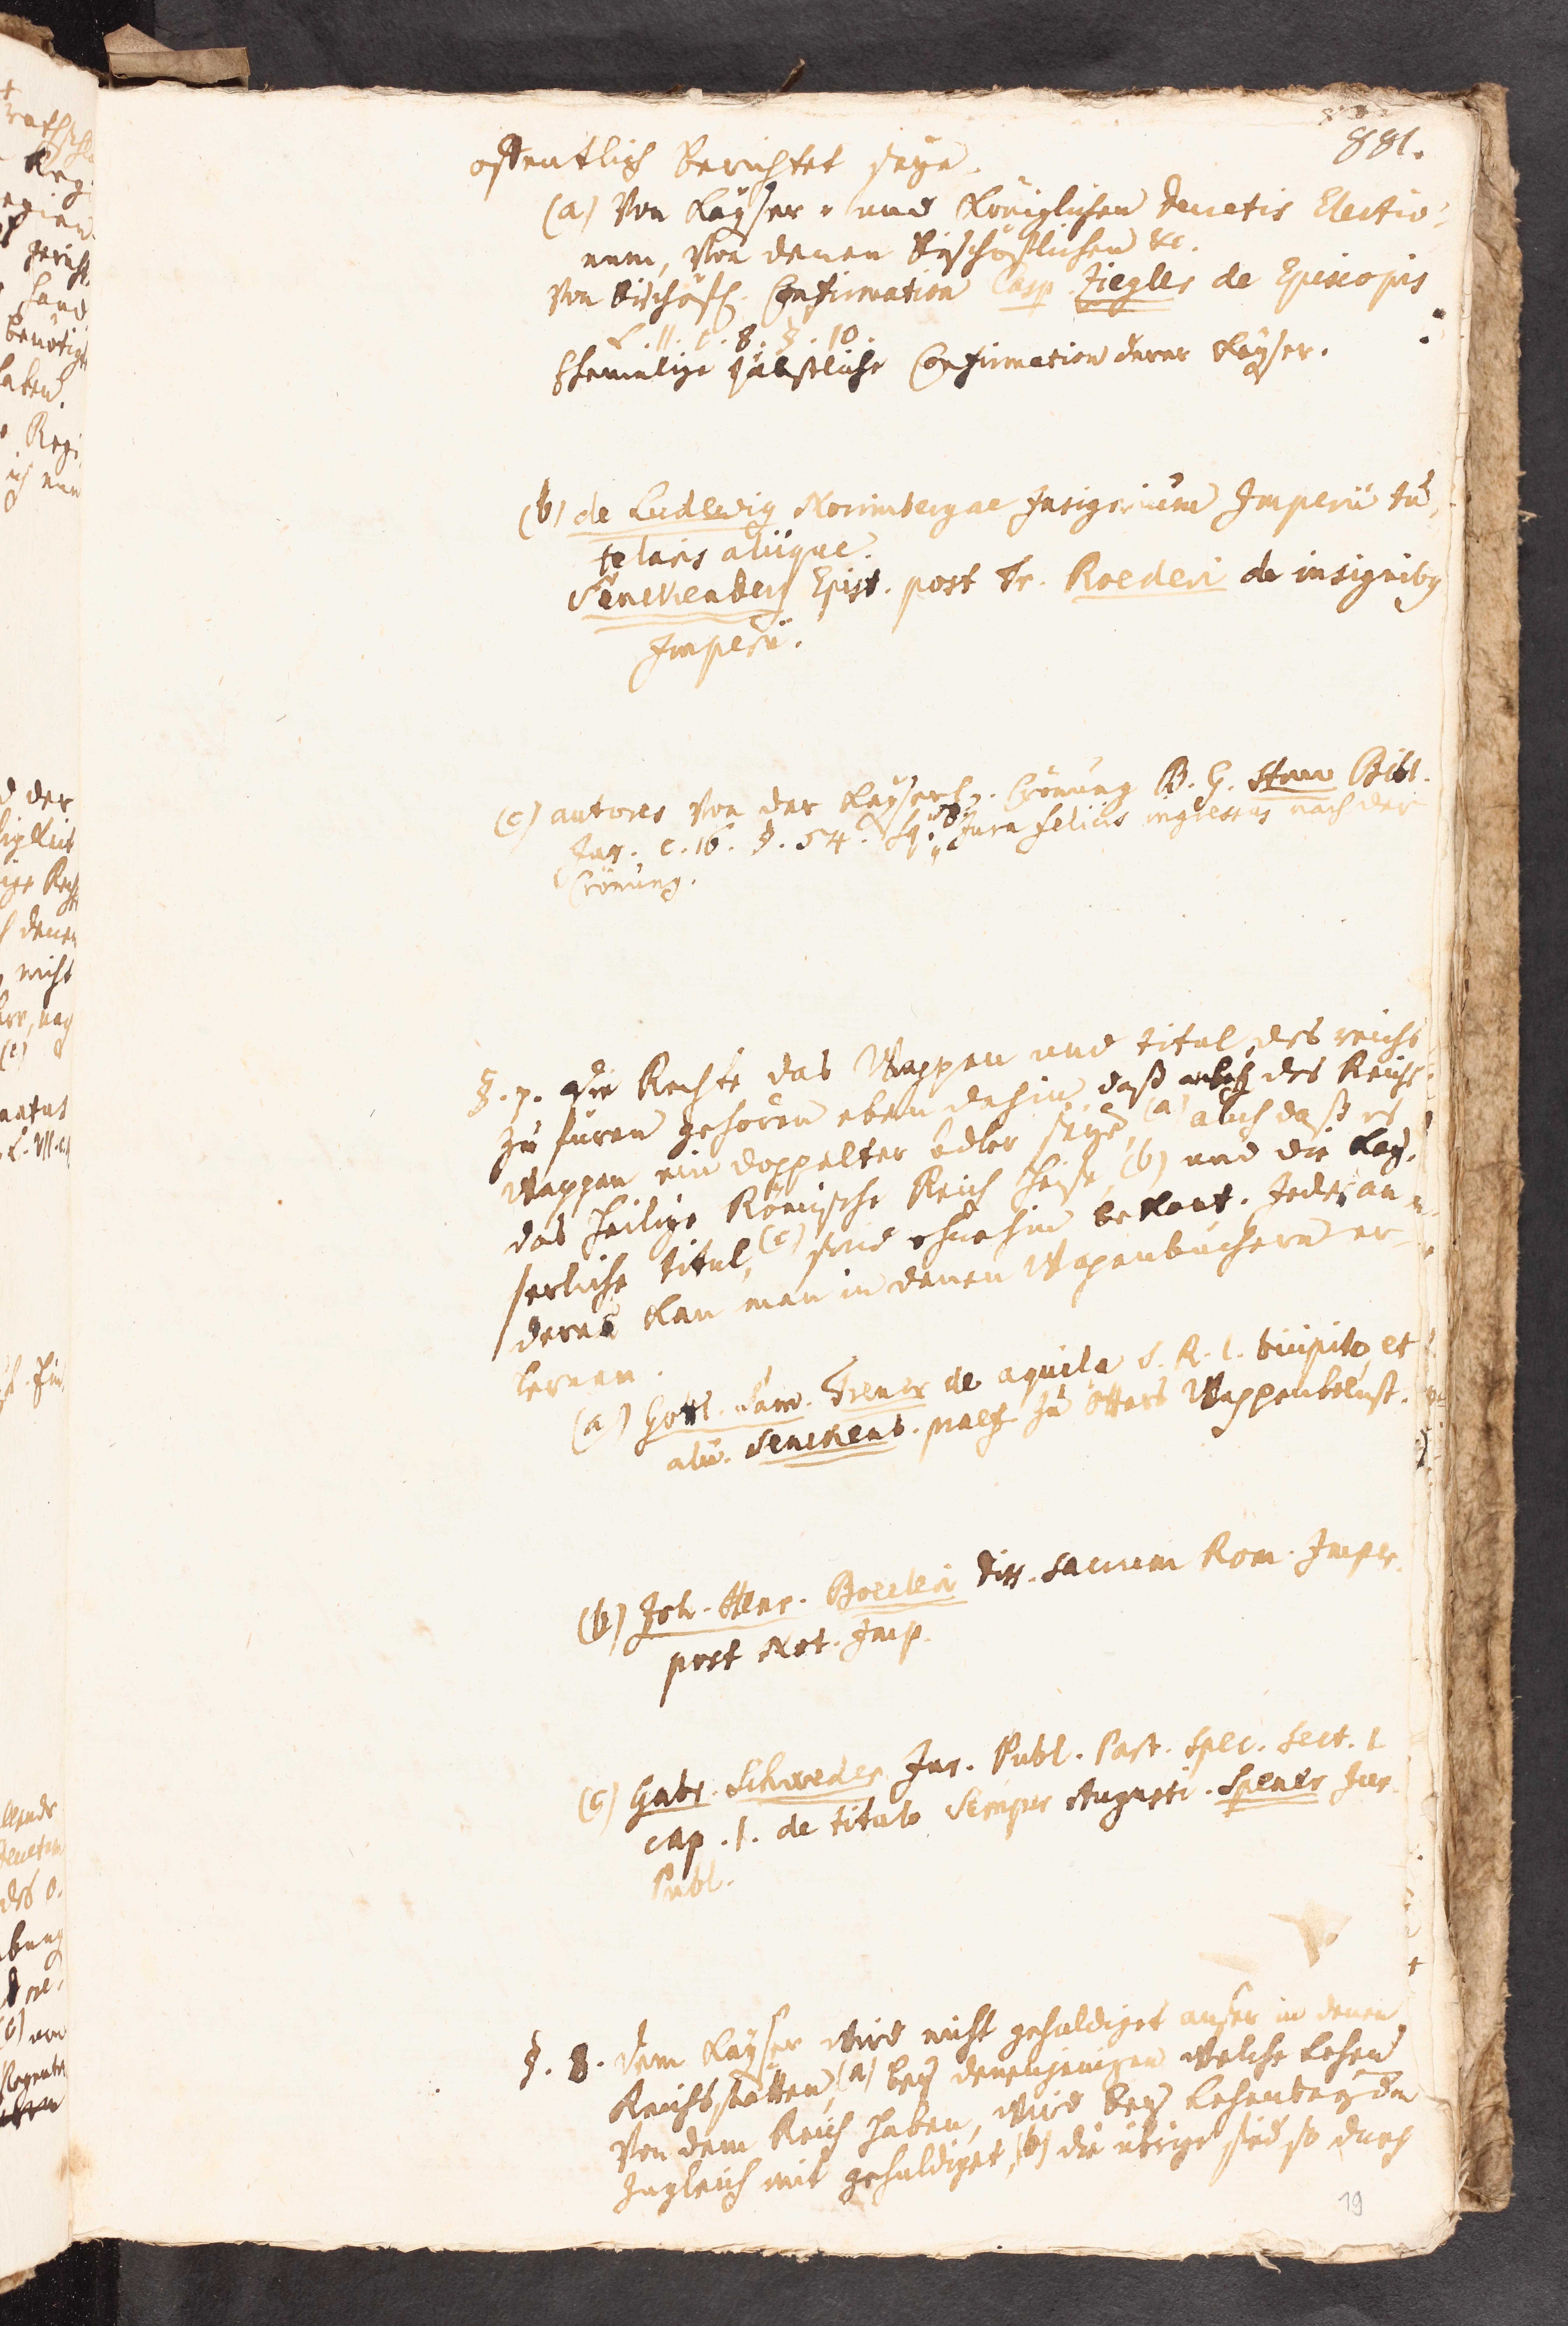 881.
öffentlich berichtet seye.
(a) Von Kayser- und Königlichen Decretis Electio-
num, von denen Bischöflichen &c.
Von Bischöfl. Confirmation Casp. Ziegler de Episcopis
L. II. c. 8. §. 10.
Ehemalige päbstliche Confirmation derer Kayser.
(b) de Ludewig Norimbergae Insignium Imperii tu-
telaris aliique.
Senckenberg Epist. post Tr. Roederi de insignibg
Imperii.
(c) autores von der Kayserl. Crönung B. G. Struv Bibl.
Jur. c. 16. §. 54. sq. Jura felicis ingressus nach der
Crönung.
§. 7. Die Rechte das Wappen und titul des reichs
zu füren gehören eben dahin, daß des Reichs
Wappen ein doppelter adler seye, (a) auch daß es
das Heilige Römische Reich heise, (b) und die Kay-
serliche titul, (c) sind ohnehin bekant. Jedes an-
deres kan man in denen Wapenbüchern er-
lernen.
(a) Gottl. Sam. Treuer de aquila S. R. I. bicipite et
alii. Senckenb. praef. zu Otters Wappenbelust.
(b) Joh. Henr. Boecleri Diss. Sacrum Rom. Imper.
post Not. Imp.
(c) Gabr. Schweder Jus. Publ. Part. Spec. Sect. 1
cap. 1. de titulo Semper Augusti. Spener Jus.
Publ.
§. 8. Dem Kayser wird nicht gehuldiget auser in denen
Reichsstätten, (a) bey denenjenigen welche Lehen
von dem Reich haben, wird bey
zugleich mit gehuldiget, (b) die übrige sind so durch
19